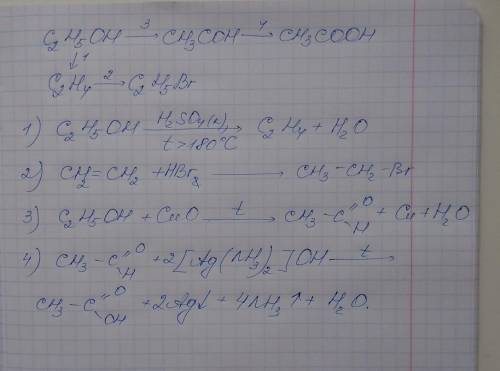 C₂H₅OH —3→ CH₃COH —4→ CH₃COOH
↓1
C₂H₄ —2→ C₂H₅Br
1) C₂H₅OH —H₂SO₄(к), t>180°C→ C₂H₄ + H₂O
2) CH₂=CH₂ + HBr → CH₃–CH₂–Br
3) C₂H₅OH + CuO —t→ CH₃–C(=O)H + Cu + H₂O
4) CH₃–C(=O)H + 2[Ag(NH₃)₂]OH —t→
CH₃–C(=O)OH + 2Ag↓ + 4NH₃↑ + H₂O.